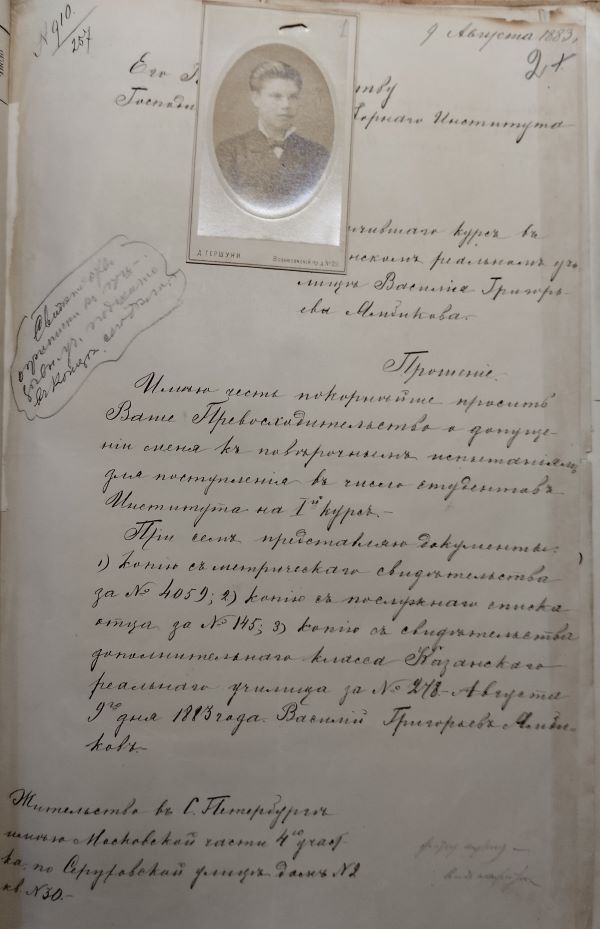 № 910.
257
9 Августа 1883,
2
1
Его
ству
Господи
Горнаго Института
Д. ГЕРШУНИ
Вознесенскій пр. д. №
чившаго курсъ въ
нскомъ реальномъ учи-
лищѣ Василія Григорь-
ева
Прошеніе.
Имѣю честь покорнѣйше просить
Ваше Превосходительство о допуще-
ніи меня къ повѣрочнымъ испытаніямъ
для поступленія въ число студентовъ
Института на Iй курсъ.-
При семъ представляю документы:
1) копію съ метрическаго свидѣтельства
за № 4059; 2) копію съ послужнаго списка
отца за № 145; 3) копію съ свидѣтельства
дополнительнаго класса Казанскаго
реальнаго училища за № 278- Августа
9го дня 1883 года. Василій Григорьевъ
ковъ.-
Жительство въ С. Петербургѣ
имѣю Московской части 4го участ
ка, по Серпуховской улицѣ домъ №2
кв. №30.-